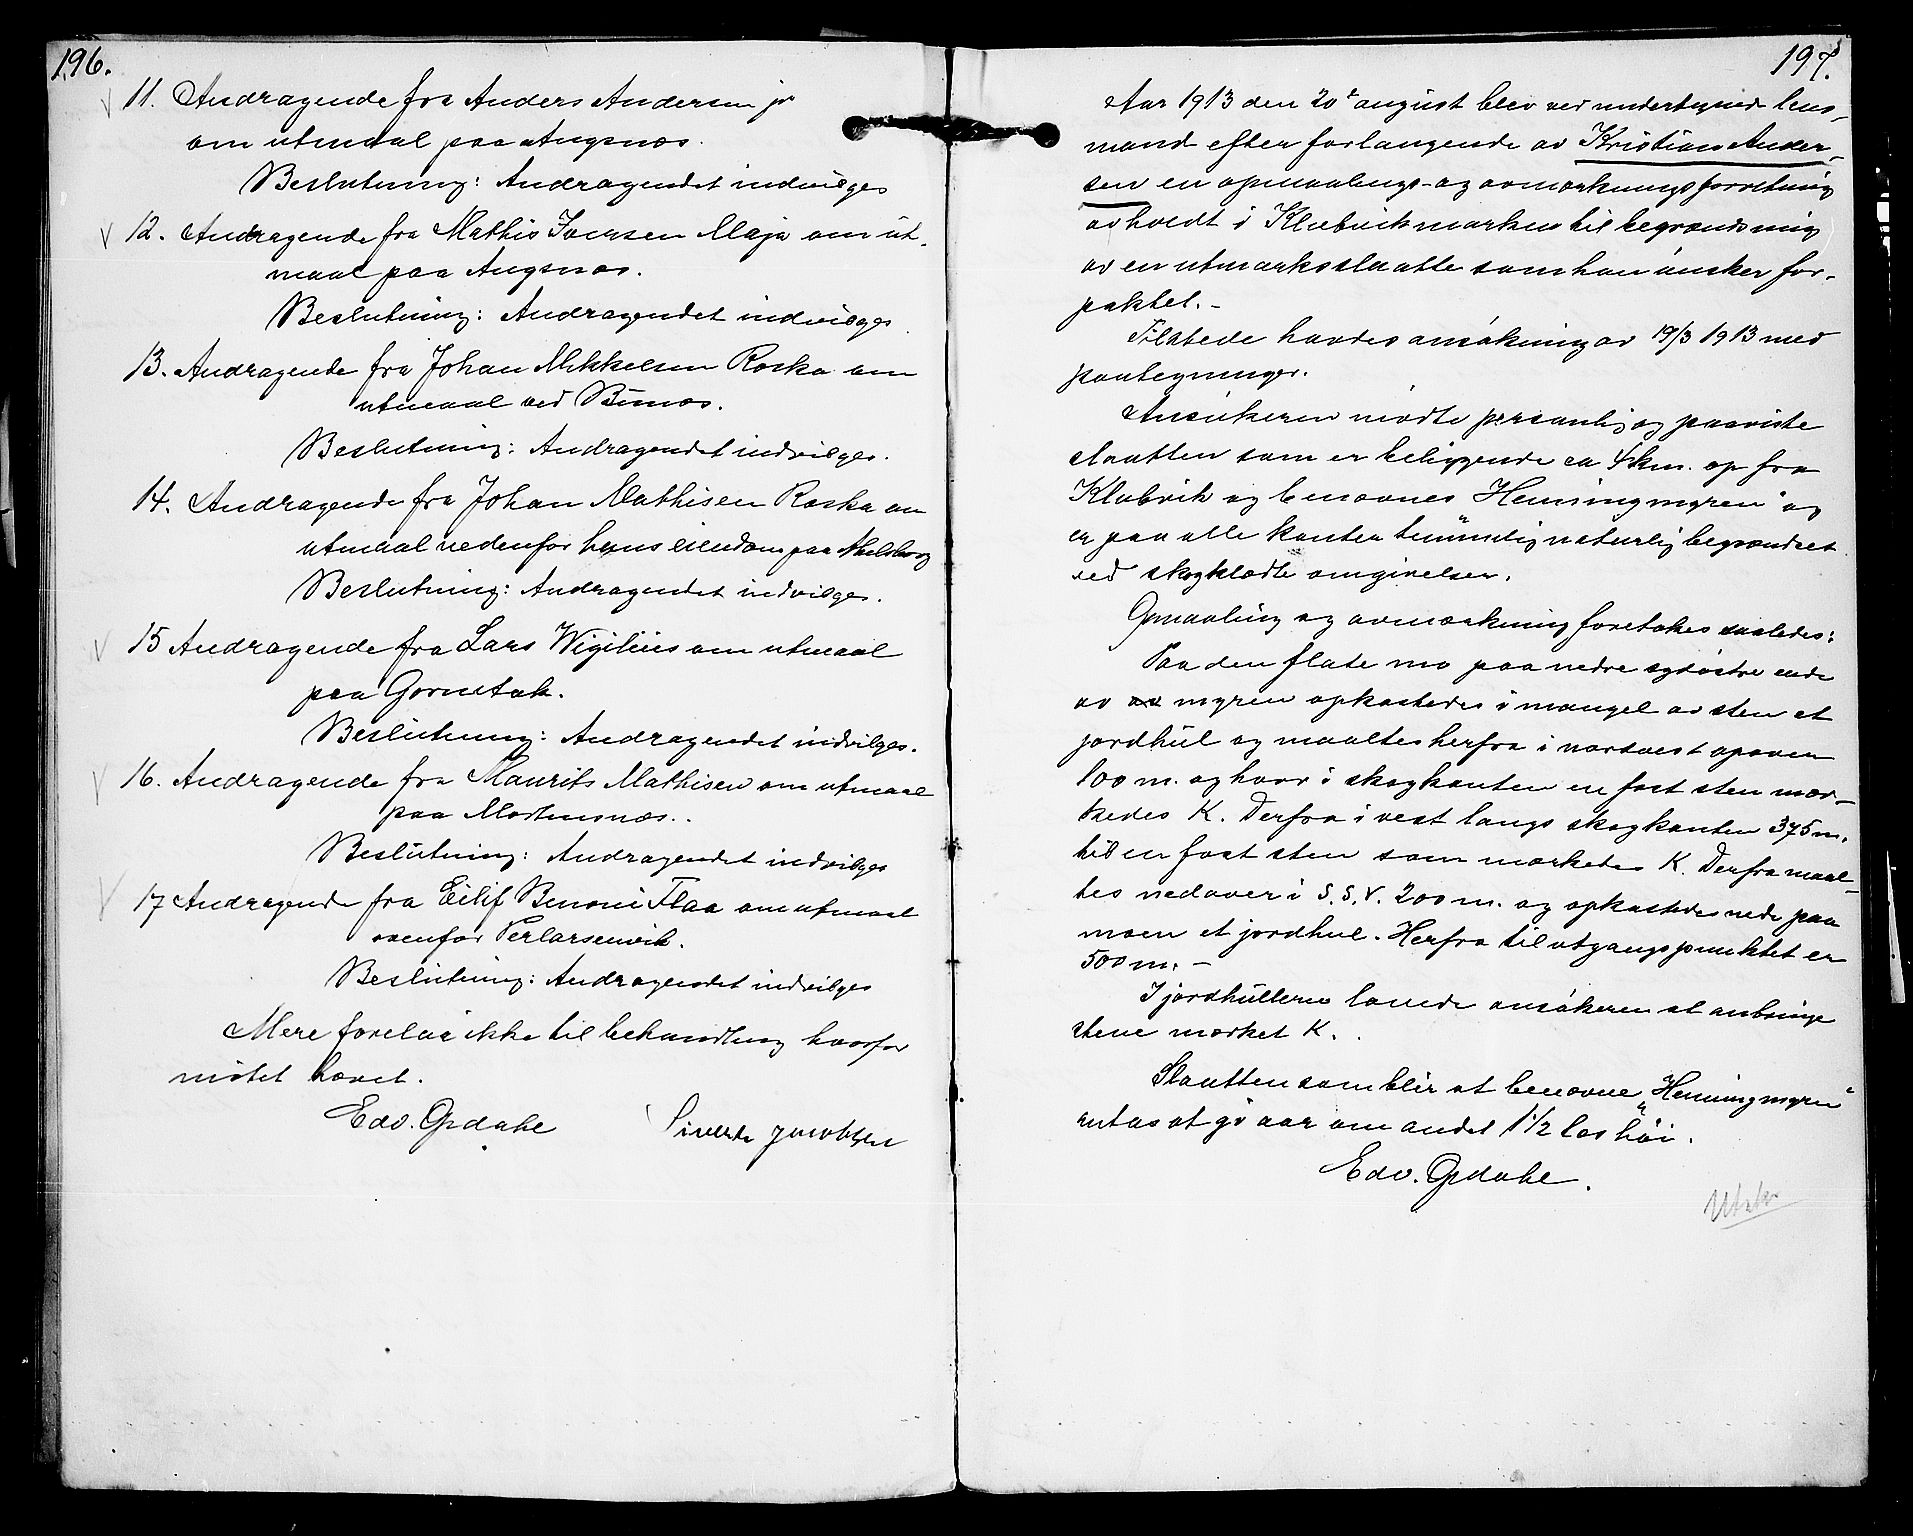 196.
11. Andragende fra Anders Andersen jr
om utmaal paa Angsnæs.
Beslutning: Andragendet indvilges
12. Andragende fra Mathis Iversen Maja om ut-
maal paa Angsnæs.
Beslutning: Andragendet indvilges.
13. Andragende fra Johan Mikkelsen Roska om
utmaal ved Bunæs.
Beslutning: Andragendet indvilges.
14. Andragende fra Johan Mathisen Roska om
utmaal nedenfor hans eiendom paa
Beslutning: Andragendet indvilges.
15 Andragende fra Lars Wigelius om utmaal
paa Gornetak.
Beslutning: Andragendet indvilges.
16. Andragende fra Maurits Mathisen om utmaal
paa Mortensnæs.
Beslutning: Andragendet indvilges
17 Andragende fra Eilif Benoni Flaa om utmaal
ovenfor Perlarsenvik.
Beslutning: Andragendet indvilges
Mere forelaa ikke til behandling hvorfor
møtet hævet.
Edv. Opdahl Sivert Jacobsen
197.
Aar 1913 den 20de august blev ved undertegnede lens-
mand efter forlangende av Kristian Ander-
sen en opmaalings- og avmerkningsforretning
avholdt i Klubvikmarken til begrændsning
av en utmarksslaatte som han ønsker for-
paktet. -
Tilstede havdes ansøkning av 19/3 1913 med
paategninger.
Ansøkeren mødte personlig og paaviste
slaatten som er beliggende ca 4 km. op fra
Klubvik og benævnes "Henningmyren" og
er paa alle kanter temmelig naturlig begrændset
ved skogklædte omgivelser.
Opmaaling og avmærkning foretokes saaledes:
Paa den flate mo paa nedre sydøstre ende
av myren opkastedes i mangel av sten et
jordhul og maaltes herfra i nordvest opover
100 m. og hvor i skogkanten en fast sten mær-
kedes K. Derfra i vest langs skogkanten 375 m.
til en fast sten som mærkedes K. Derfra maal-
tes nedover i S.S.V. 200 m. og opkastedes nede paa
moen et jordhul. Herfra til utgangspunktet er
500 m. -
I jordhullerne lovede ansøkeren at anbringe
stene mærket K.
Slaatten som blir at benævne "Henningmyren"
antas at gi aar om andet 1 1/2 las høi.
Edv. Opdahl.